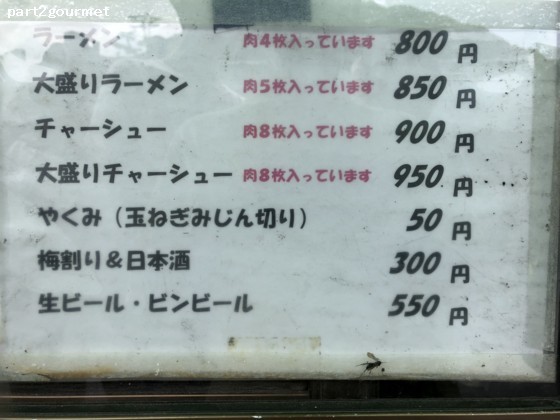 part2gourmet
ラーメン 肉4枚入っています 800円
大盛りラーメン 肉5枚入っています 850円
チャーシュー 肉8枚入っています 900円
大盛りチャーシュー 肉8枚入っています 950円
やくみ（玉ねぎみじん切り） 50円
梅割り＆日本酒 300円
生ビール・ビンビール 550円